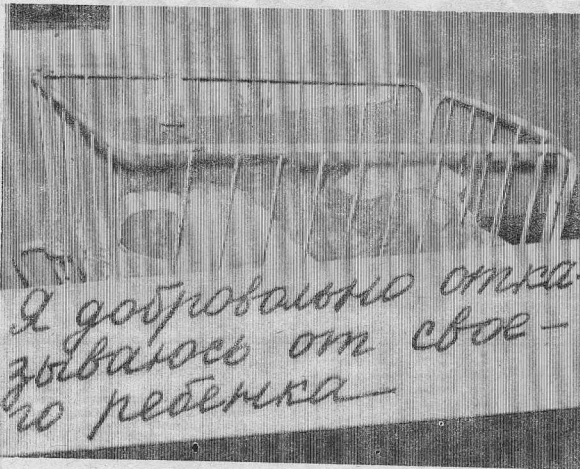 Я добровольно отка
зываюсь от свое-
го ребенка